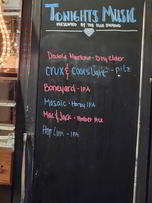 TONIGHTS MUSIC
PRESENTED BY THE BLUE DIAMOND
Double Mountain - Dry Elder
Crux & Coors Light - pilz
Boneyard - IPA
Mosaic - Hazy IPA
Mac & Jack - Amber Ale
Hop Lion - IPA